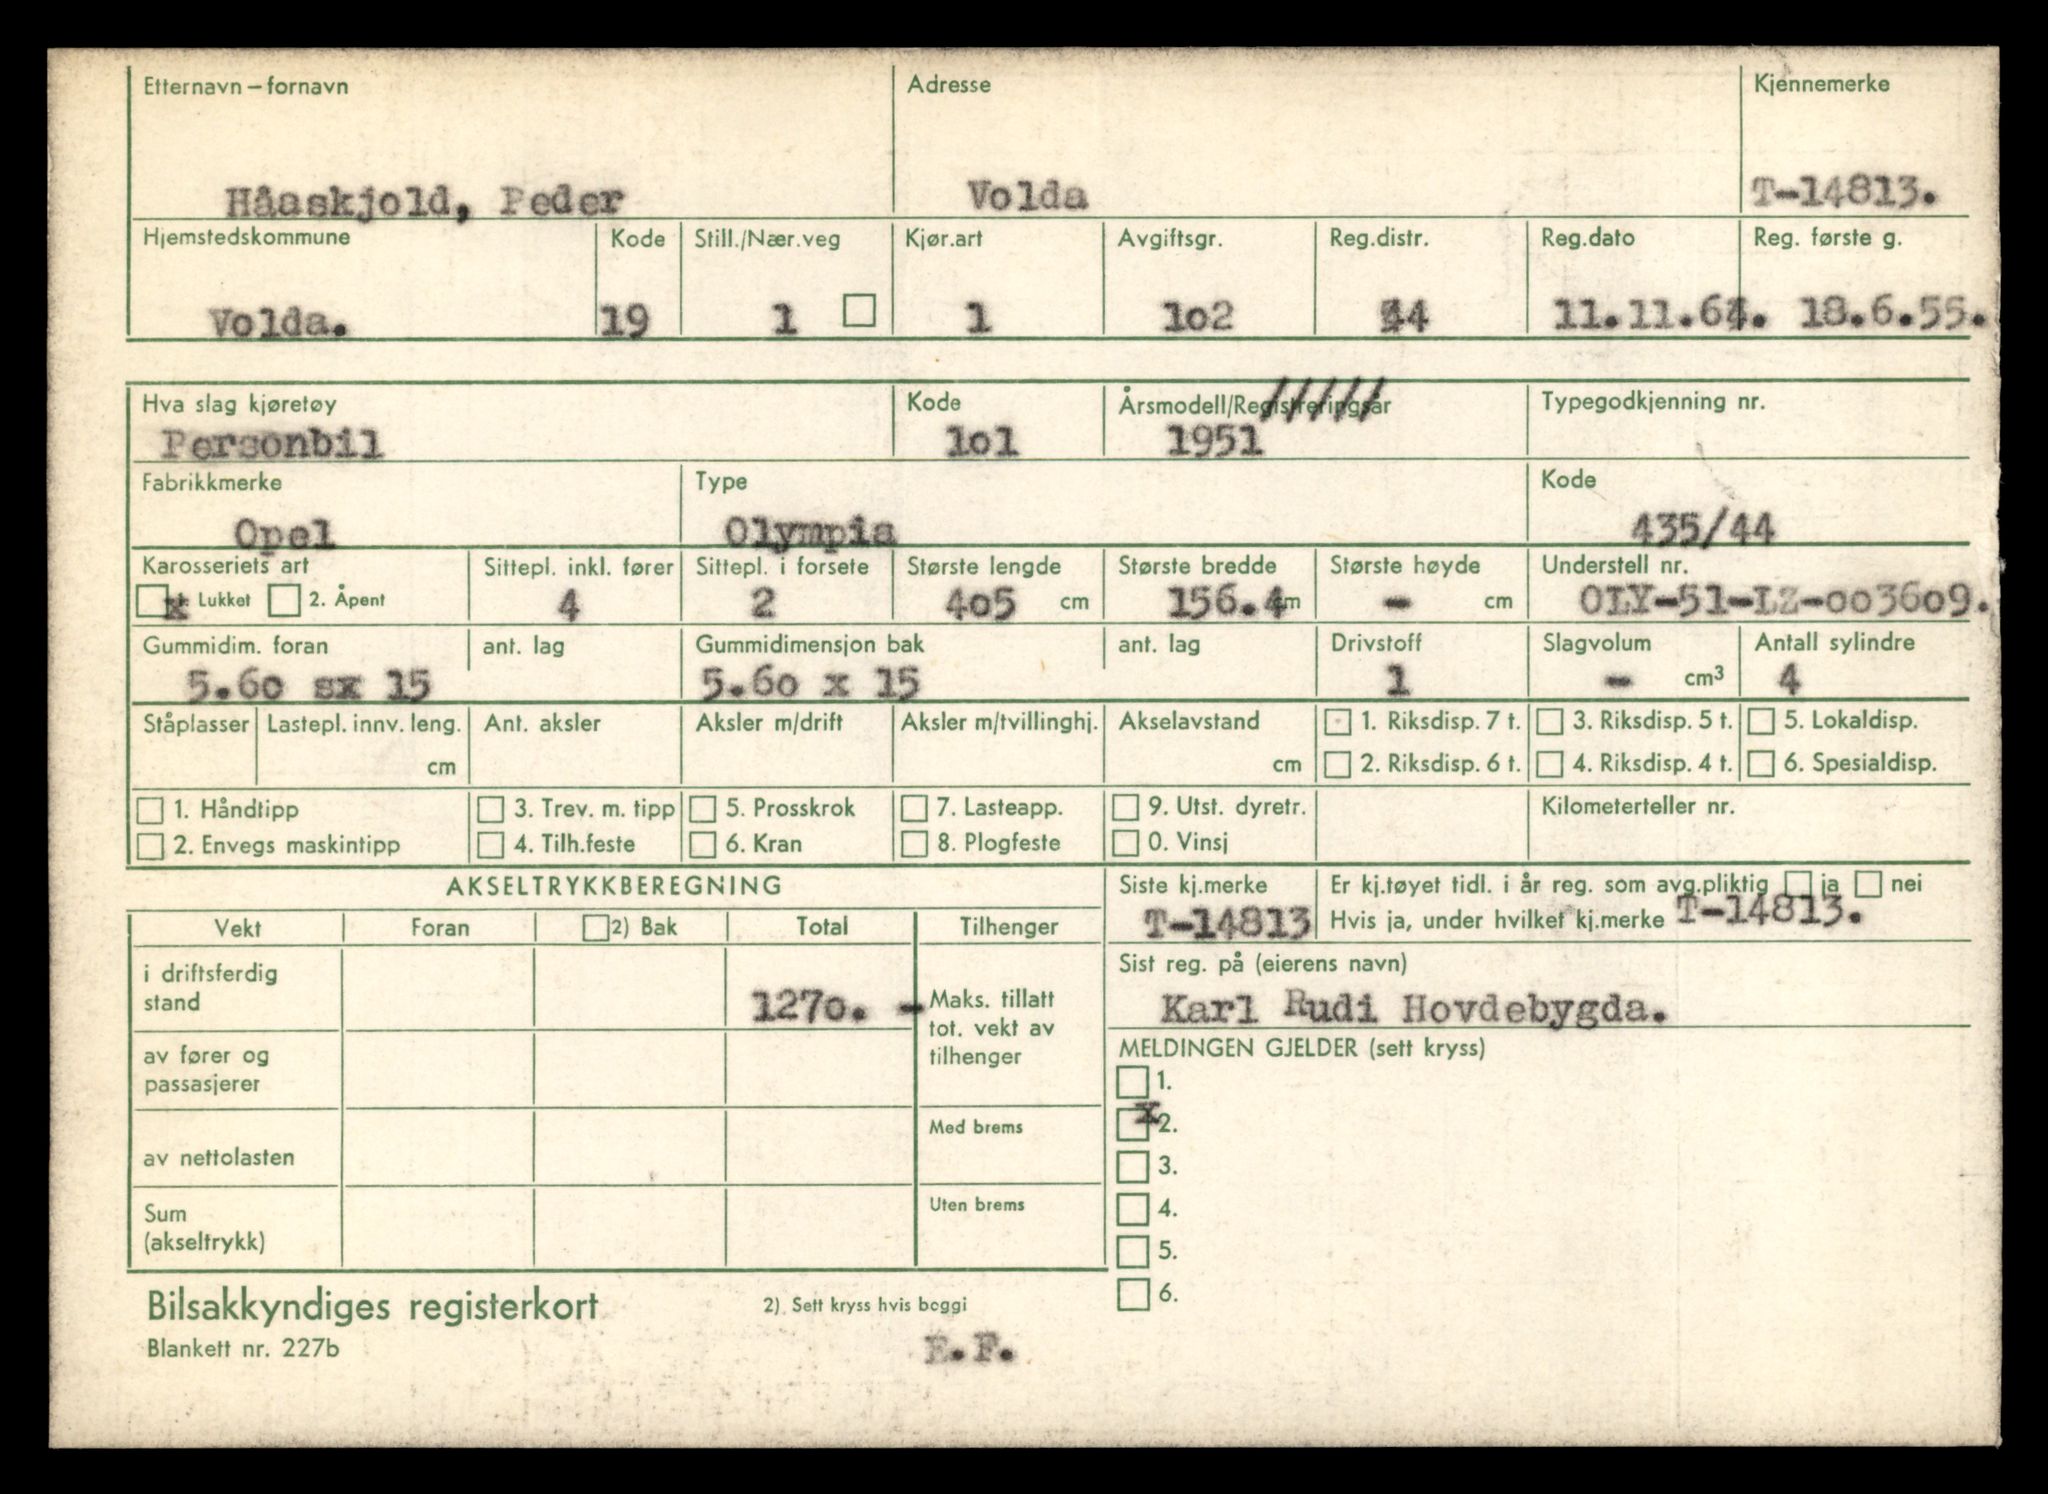 Etternavn – fornavn Adresse Kjennemerke
Håaskjold, Peder Volda T-14813.
Hjemstedskommune Kode Still./Nær.veg Kjør.art Avgiftsgr. Reg.distr. Reg.dato Reg. første g.
Volda. 19 1 1 1o2 44 11.11.61. 18.6.55.
Hva slag kjøretøy Kode Årsmodell/Registreringsår Typegodkjenning nr.
/////
Personbil 1o1 1951
Fabrikkmerke Type Kode
Opel Olympia 435/44
Karosseriets art Sittepl. inkl. fører Sittepl. i forsete Største lengde Største bredde Største høyde Understell nr.
x Lukket 2. Åpent 4 2 4o5 cm 156.4 cm - cm OLY-51-LZ-oo36o9.
Gummidim. foran ant. lag Gummidimensjon bak ant. lag Drivstoff Slagvolum Antall sylindre
5.6o sx 15 5.6o x 15 1 - cm³ 4
Ståplasser Lastepl. innv. leng. Ant. aksler Aksler m/drift Aksler m/tvillinghj. Akselavstand 1. Riksdisp. 7 t. 3. Riksdisp. 5 t. 5. Lokaldisp.
cm cm 2. Riksdisp. 6 t. 4. Riksdisp. 4 t. 6. Spesialdisp.
1. Håndtipp 3. Trev. m. tipp 5. Prosskrok 7. Lasteapp. 9. Utst. dyretr. Kilometerteller nr.
2. Envegs maskintipp 4. Tilh.feste 6. Kran 8. Plogfeste 0. Vinsj
AKSELTRYKKBEREGNING Siste kj.merke Er kj.tøyet tidl. i år reg. som avg.pliktig ja nei
T-14813 Hvis ja, under hvilket kj.merke T-14813.
Vekt Foran 2) Bak Total Tilhenger
Sist reg. på (eierens navn)
Karl Rudi Hovdebygda.
i driftsferdig
stand 127o. -
Maks. tillatt
tot. vekt av
tilhenger
av fører og
passasjerer
MELDINGEN GJELDER (sett kryss)
1.
x 2.
3.
4.
5.
6.
Med brems
av nettolasten
Uten brems
Sum
(akseltrykk)
Bilsakkyndiges registerkort 2) Sett kryss hvis boggi
Blankett nr. 227b E.F.